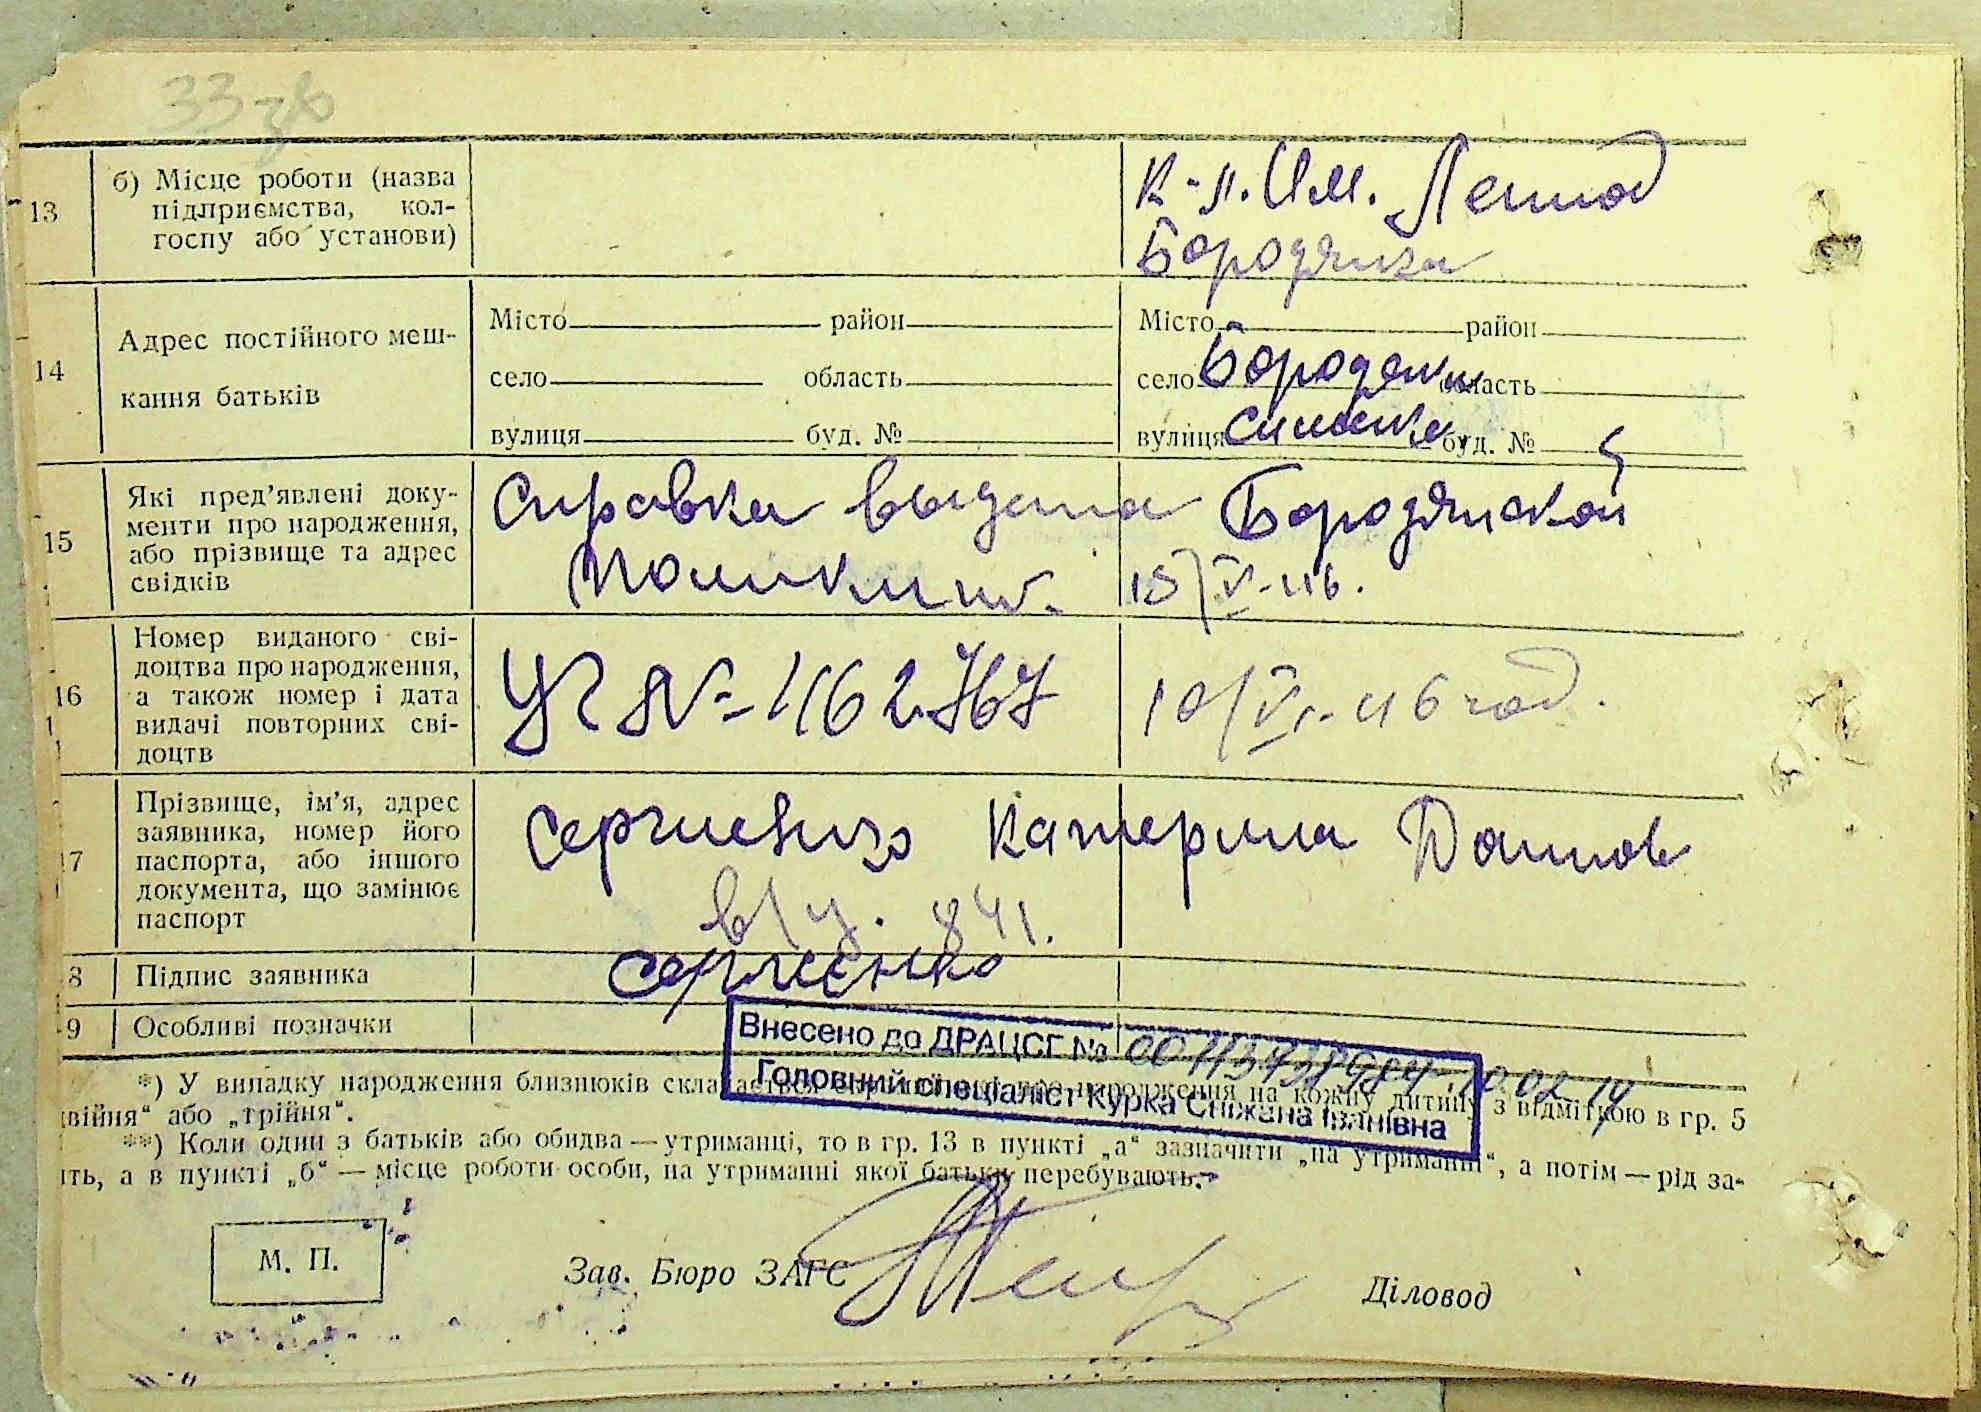 33зв
13
б) Місце роботи (назва
підприємства, кол-
госпу або установи)
к-п. Им.
Бородянка
14
Адрес постійного меш-
кання батьків
Місто район
село область
вулиця буд. №
Місто район
село Бородянка область
вулиця буд. № 5
15
Які пред’явлені доку-
менти про народження,
або прізвище та адрес
свідків
Справка выдана Бородянской
15/V-46.
16
Номер виданого сві-
доцтва про народження,
а також номер і дата
видачі повторних сві-
доцтв
УГ № 462767 10/VI-46 год.
17
Прізвище, ім’я, адрес
заявника, номер його
паспорта, або іншого
документа, що замінює
паспорт
Сергиенко Катерина
в/у. 841.
8
Підпис заявника
Сергиєнко
9
Особливі позначки
Внесено до ДРАЦСГ № 20.02.14
Головний спеціаліст Курка Сніжана Іванівна
*) У випадку народження близнюків складається про народження на кожну дитину з відміткою в гр. 5
війня“ або „трійня“.
**) Коли один з батьків або обидва — утриманці, то в гр. 13 в пункті „а“ зазначити „на утриманні“, а потім — рід за-
іть, а в пункті „б“ — місце роботи особи, на утриманні якої батьки перебувають.
М. П.
Зав. Бюро ЗАГС
Діловод